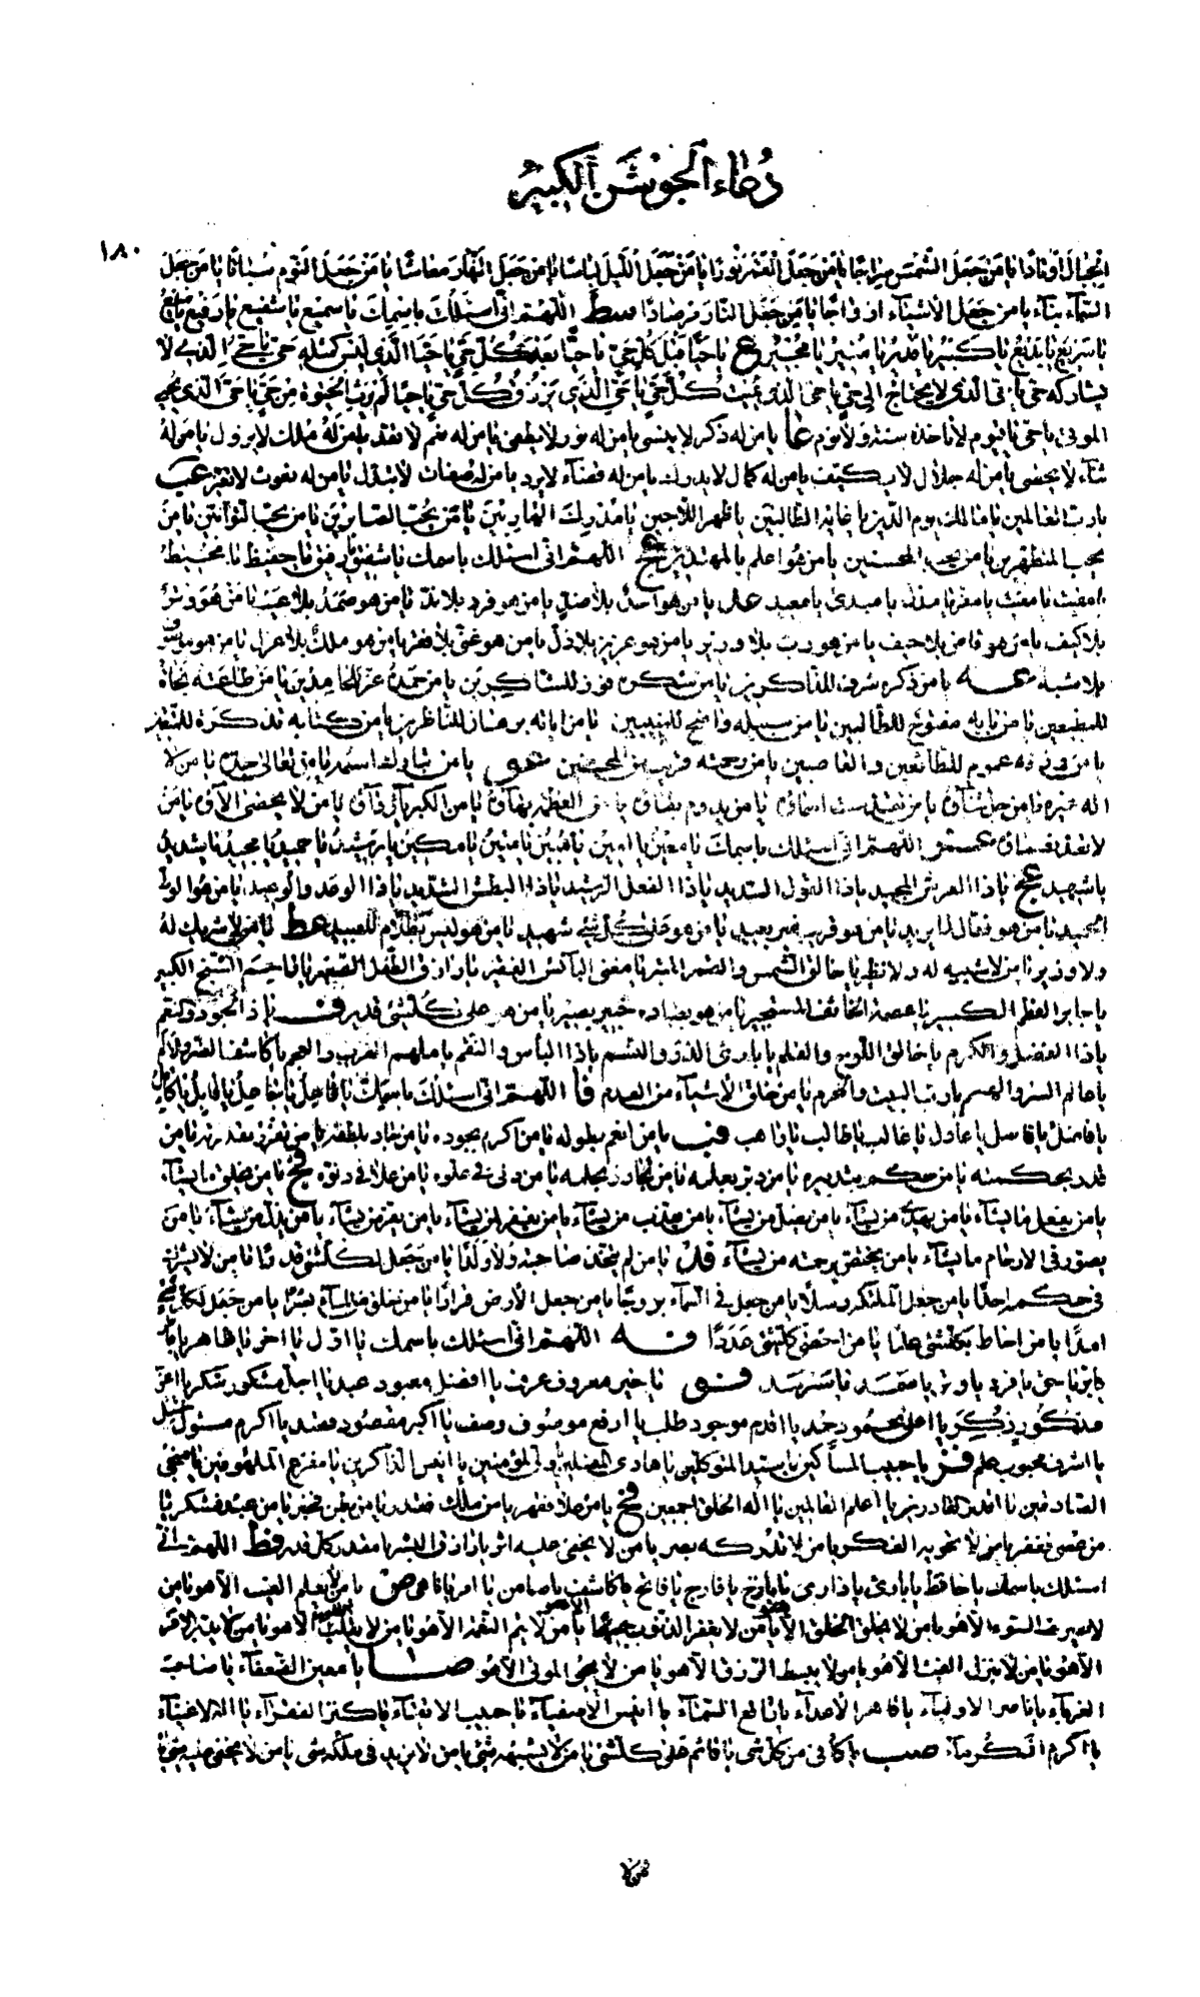 دُعَاءُ الْجَوْشَنِ الْكَبِيرُ
١٨٠
الجبال اوتادا يا من جعل الشمس سراجا يا من جعل القمر نورا يا من جعل الليل لباسا يا من جعل النهار معاشا يا من جعل النوم سباتا يا من جعل
السمآء بنآء يا من جعل الأشيآء ازواجا يا من جعل النار مرصادا سط اللهم اني اسئلك باسمك يا سميع يا شفيع يا رفيع يا منيع
يا سريع يا بديع يا كبير يا قدير يا منير يا مجير ع يا حيا قبل كل حي يا حيا بعد كل حي يا حي الذي ليس كمثله حي يا حي الذي لا
يشاركه حي يا حي الذي لا يحتاج الى حي يا حي الذي يميت كل حي يا حي الذي يرزق كل حي يا حيا لم يرث الحيوة من حي يا حي الذي يحيي
الموتى يا حي يا قيوم لا تأخذه سنة ولا نوم عا يا من له ذكر لا ينسى يا من له نور لا يطفى يا من له نعم لا تعد يا من له ملك لا يزول يا من له
ثنآء لا يحصى يا من له جلال لا يكيف يا من له كمال لا يدرك يا من له قضآء لا يرد يا من له صفات لا تبدل يا من له نعوت لا تغير عب
يا رب العالمين يا مالك يوم الدين يا غاية الطالبين يا ظهر اللاجين يا مدرك الهاربين يا من يحب الصابرين يا من يحب التوابين يا من
يحب المتطهرين يا من يحب المحسنين يا من هو اعلم بالمهتدين عج اللهم اني اسئلك باسمك يا شفيق يا رفيق يا حفيظ يا محيط
يا مقيت يا مغيث يا معز يا مذل يا مبدئ يا معيد عد يا من هو احد بلا ضد يا من هو فرد بلا ند يا من هو صمد بلا عيب يا من هو وتر
بلا كيف يا من هو قاض بلا حيف يا من هو رب بلا وزير يا من هو عزيز بلا ذل يا من هو غني بلا فقر يا من هو ملك بلا عزل يا من هو موصوف
بلا شبيه عه يا من ذكره شرف للذاكرين يا من شكره فوز للشاكرين يا من حمده عز للحامدين يا من طاعته نجاة
للمطيعين يا من بابه مفتوح للطالبين يا من سبيله واضح للمنيبين يا من اياته برهان للناظرين يا من كتابه تذكرة للمتقين
يا من رزقه عموم للطائعين والعاصين يا من رحمته قريب من المحسنين عو يا من تبارك اسمه يا من تعالى جده يا من لا
اله غيره يا من جل ثناؤه يا من تقدست اسماؤه يا من يدوم بقاؤه يا من العظمة بهاؤه يا من الكبريآء رداؤه يا من لا يحصى الآؤه يا من
لا تعد نعماؤه عز اللهم اني اسئلك باسمك يا معين يا امين يا مبين يا متين يا مكين يا رشيد يا حميد يا مجيد يا شديد
يا شهيد عح يا ذا العرش المجيد يا ذا القول السديد يا ذا الفعل الرشيد يا ذا البطش الشديد يا ذا الوعد والوعيد يا من هو الولي
الحميد يا من هو فعال لما يريد يا من هو قريب غير بعيد يا من هو على كل شئ شهيد يا من هو ليس بظلام للعبيد عط يا من لا شريك له
ولا وزير يا من لا شبيه له ولا نظير يا خالق الشمس والقمر المنير يا مغني البآئس الفقير يا رازق الطفل الصغير يا راحم الشيخ الكبير
يا جابر العظم الكسير يا عصمة الخائف المستجير يا من هو بعباده خبير بصير يا من هو على كل شئ قدير ف يا ذا الجود والنعم
يا ذا الفضل والكرم يا خالق اللوح والقلم يا بارئ الذر والنسم يا ذا البأس والنقم يا ملهم العرب والعجم يا كاشف الضر والألم
يا عالم السر والهمم يا رب البيت والحرم يا من خلق الأشيآء من العدم فا اللهم اني اسئلك باسمك يا فاعل يا جاعل يا قابل يا كامل
يا فاضل يا فاصل يا عادل يا غالب يا طالب يا واهب فب يا من انعم بطوله يا من اكرم بجوده يا من جاد بلطفه يا من تعزز بقدرته يا من
قدر بحكمته يا من حكم بتدبيره يا من دبر بعلمه يا من تجاوز بحلمه يا من دنى في علوه يا من علا في دنوه فج يا من يخلق ما يشآء
يا من يفعل ما يشآء يا من يهدي من يشآء يا من يضل من يشآء يا من يعذب من يشآء يا من يغفر لمن يشآء يا من يعز من يشآء يا من يذل من يشآء يا من
يصور في الارحام ما يشآء يا من يختص برحمته من يشآء فد يا من لم يتخذ صاحبة ولا ولدا يا من جعل لكل شئ قدرا يا من لا يشرك
في حكمه احدا يا من جعل الملئكة رسلا يا من جعل في السمآء بروجا يا من جعل الأرض قرارا يا من خلق من المآء بشرا يا من جعل لكل شئ
امدا يا من احاط بكل شئ علما يا من احصى كل شئ عددا فه اللهم اني اسئلك باسمك يا اول يا اخر يا ظاهر يا باطن
يا بر يا حق يا فرد يا وتر يا صمد يا سرمد فو يا خير معروف عرف يا افضل معبود عبد يا اجل مشكور شكر يا اعز
مذكور ذكر يا اعلى محمود حمد يا اقدم موجود طلب يا ارفع موصوف وصف يا اكبر مقصود قصد يا اكرم مسئول سئل
يا اشرف محبوب علم فز يا حبيب الباكين يا سيد المتوكلين يا هادي المضلين يا ولي المؤمنين يا انيس الذاكرين يا مفزع الملهوفين يا منجي
الصادقين يا اقدر القادرين يا اعلم العالمين يا اله الخلق اجمعين فح يا من علا فقهر يا من ملك فقدر يا من بطن فخبر يا من عبد فشكر يا
من عصي فغفر يا من لا تحويه الفكر يا من لا يدركه بصر يا من لا يخفى عليه اثر يا رازق البشر يا مقدر كل قدر فط اللهم اني
اسئلك باسمك يا حافظ يا بارئ يا ذارئ يا باذخ يا فارج يا فاتح يا كاشف يا ضامن يا امر يا ناهي ص يا من لا يعلم الغيب الا هو يا من
لا يصرف السوء الا هو يا من لا يخلق الخلق الا هو يا من لا يغفر الذنوب الا هو يا من لا يتم النعمة الا هو يا من لا يقلب القلوب الا هو يا من لا يدبر الأمر
الا هو يا من لا ينزل الغيث الا هو يا من لا يبسط الرزق الا هو يا من لا يحيي الموتى الا هو صا يا معين الضعفآء يا صاحب
الغربآء يا ناصر الاوليآء يا قاهر الاعدآء يا رافع السمآء يا انيس الأصفيآء يا حبيب الاتقيآء يا كنز الفقرآء يا اله الاغنيآء
يا اكرم الكرمآء صب يا كافي من كل شئ يا قائم على كل شئ يا من لا يشبهه شئ يا من لا يزيد في ملكه شئ يا من لا يخفى عليه شئ يا